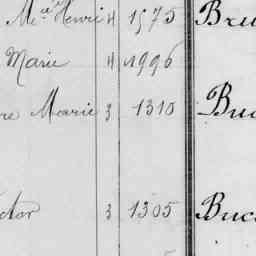 Mce Henri 4 1575 Bru
Marie 4 1996
re Marie 3 1310 Buc
ctor 3 1305 Buc